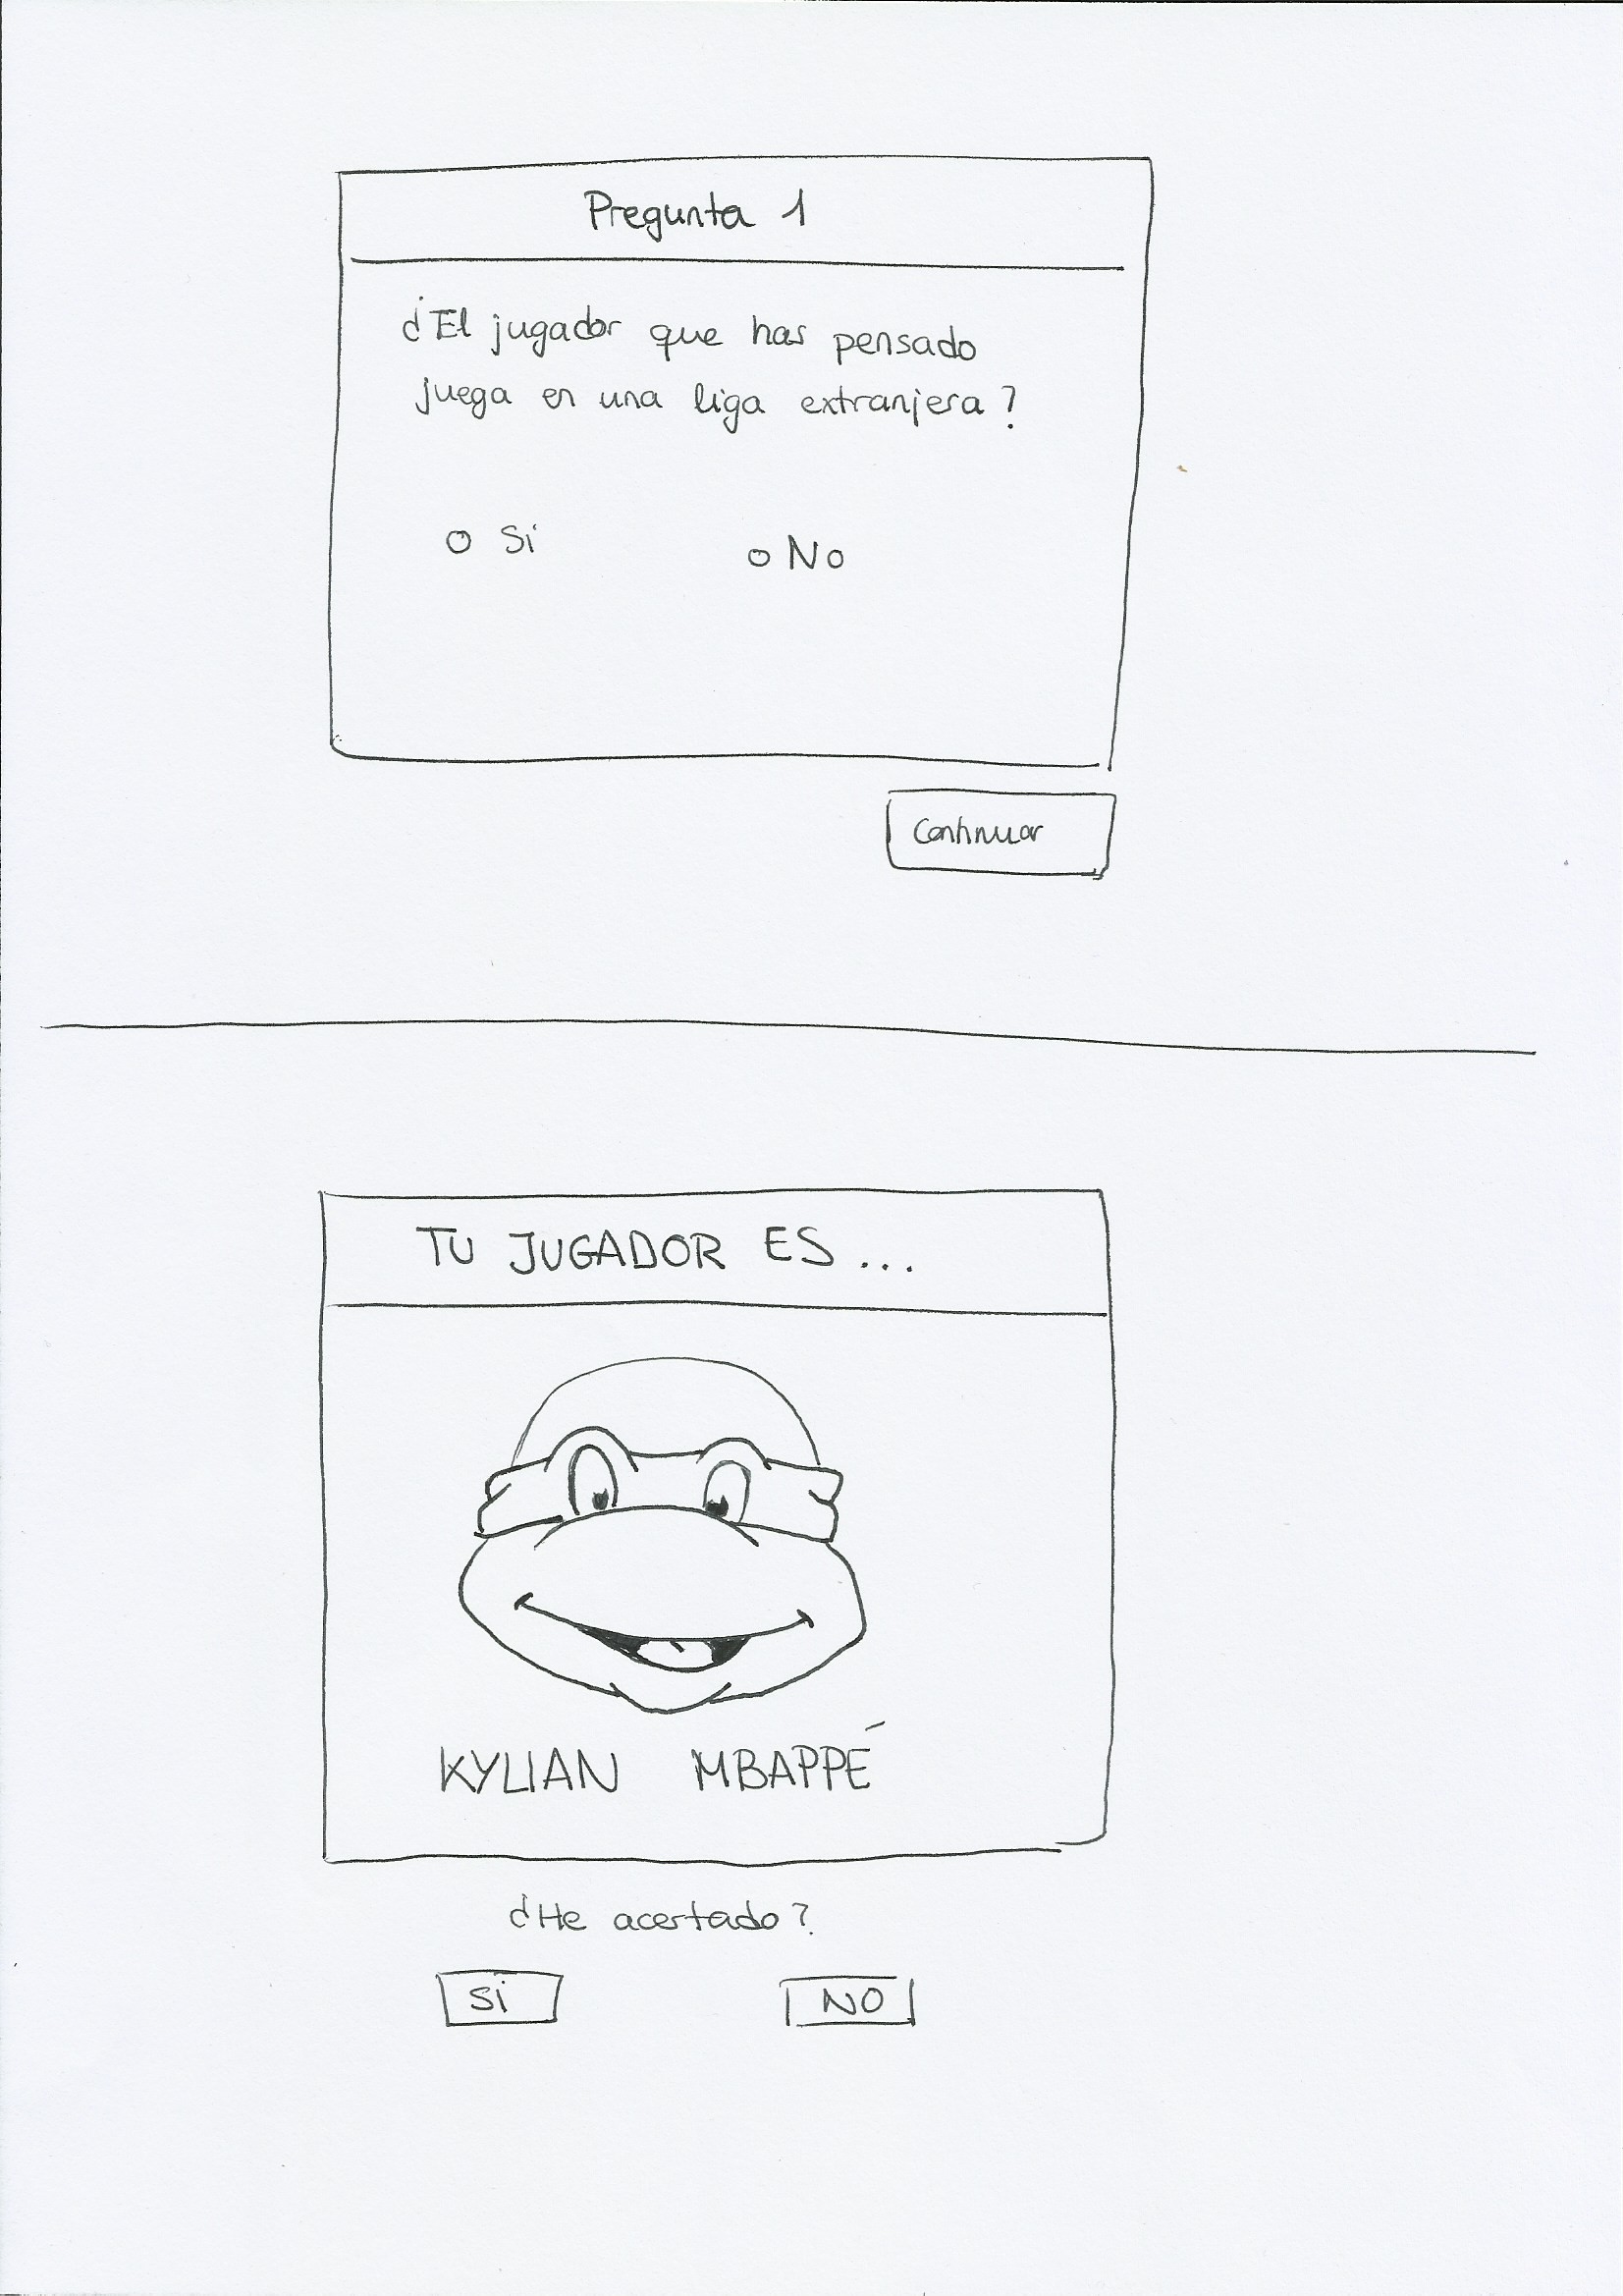 Pregunta 1
¿El jugador que has pensado
juega en una liga extranjera?
Si
No
Continuar
TU JUGADOR ES...
KYLIAN MBAPPÉ
¿He acertado?
Si
NO